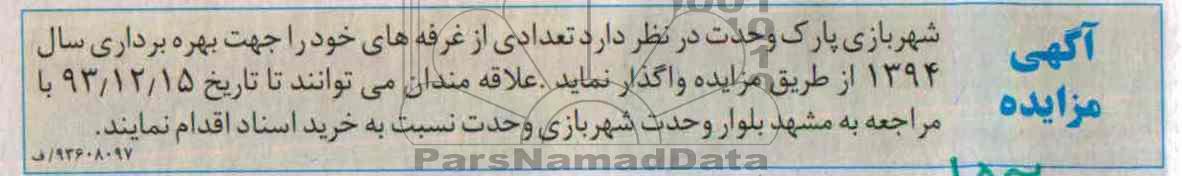 آگهی
مزایده
شهربازی پارک وحدت در نظر دارد تعدادی از غرفه های خود را جهت بهره برداری سال
۱۳۹۴ از طریق مزایده واگذار نماید .علاقه مندان می توانند تا تاریخ ۹۳/۱۲/۱۵ با
مراجعه به مشهد بلوار وحدت شهربازی وحدت نسبت به خرید اسناد اقدام نمایند.
۹۳۶۰۸۰۹۷/ف
ParsNamadData